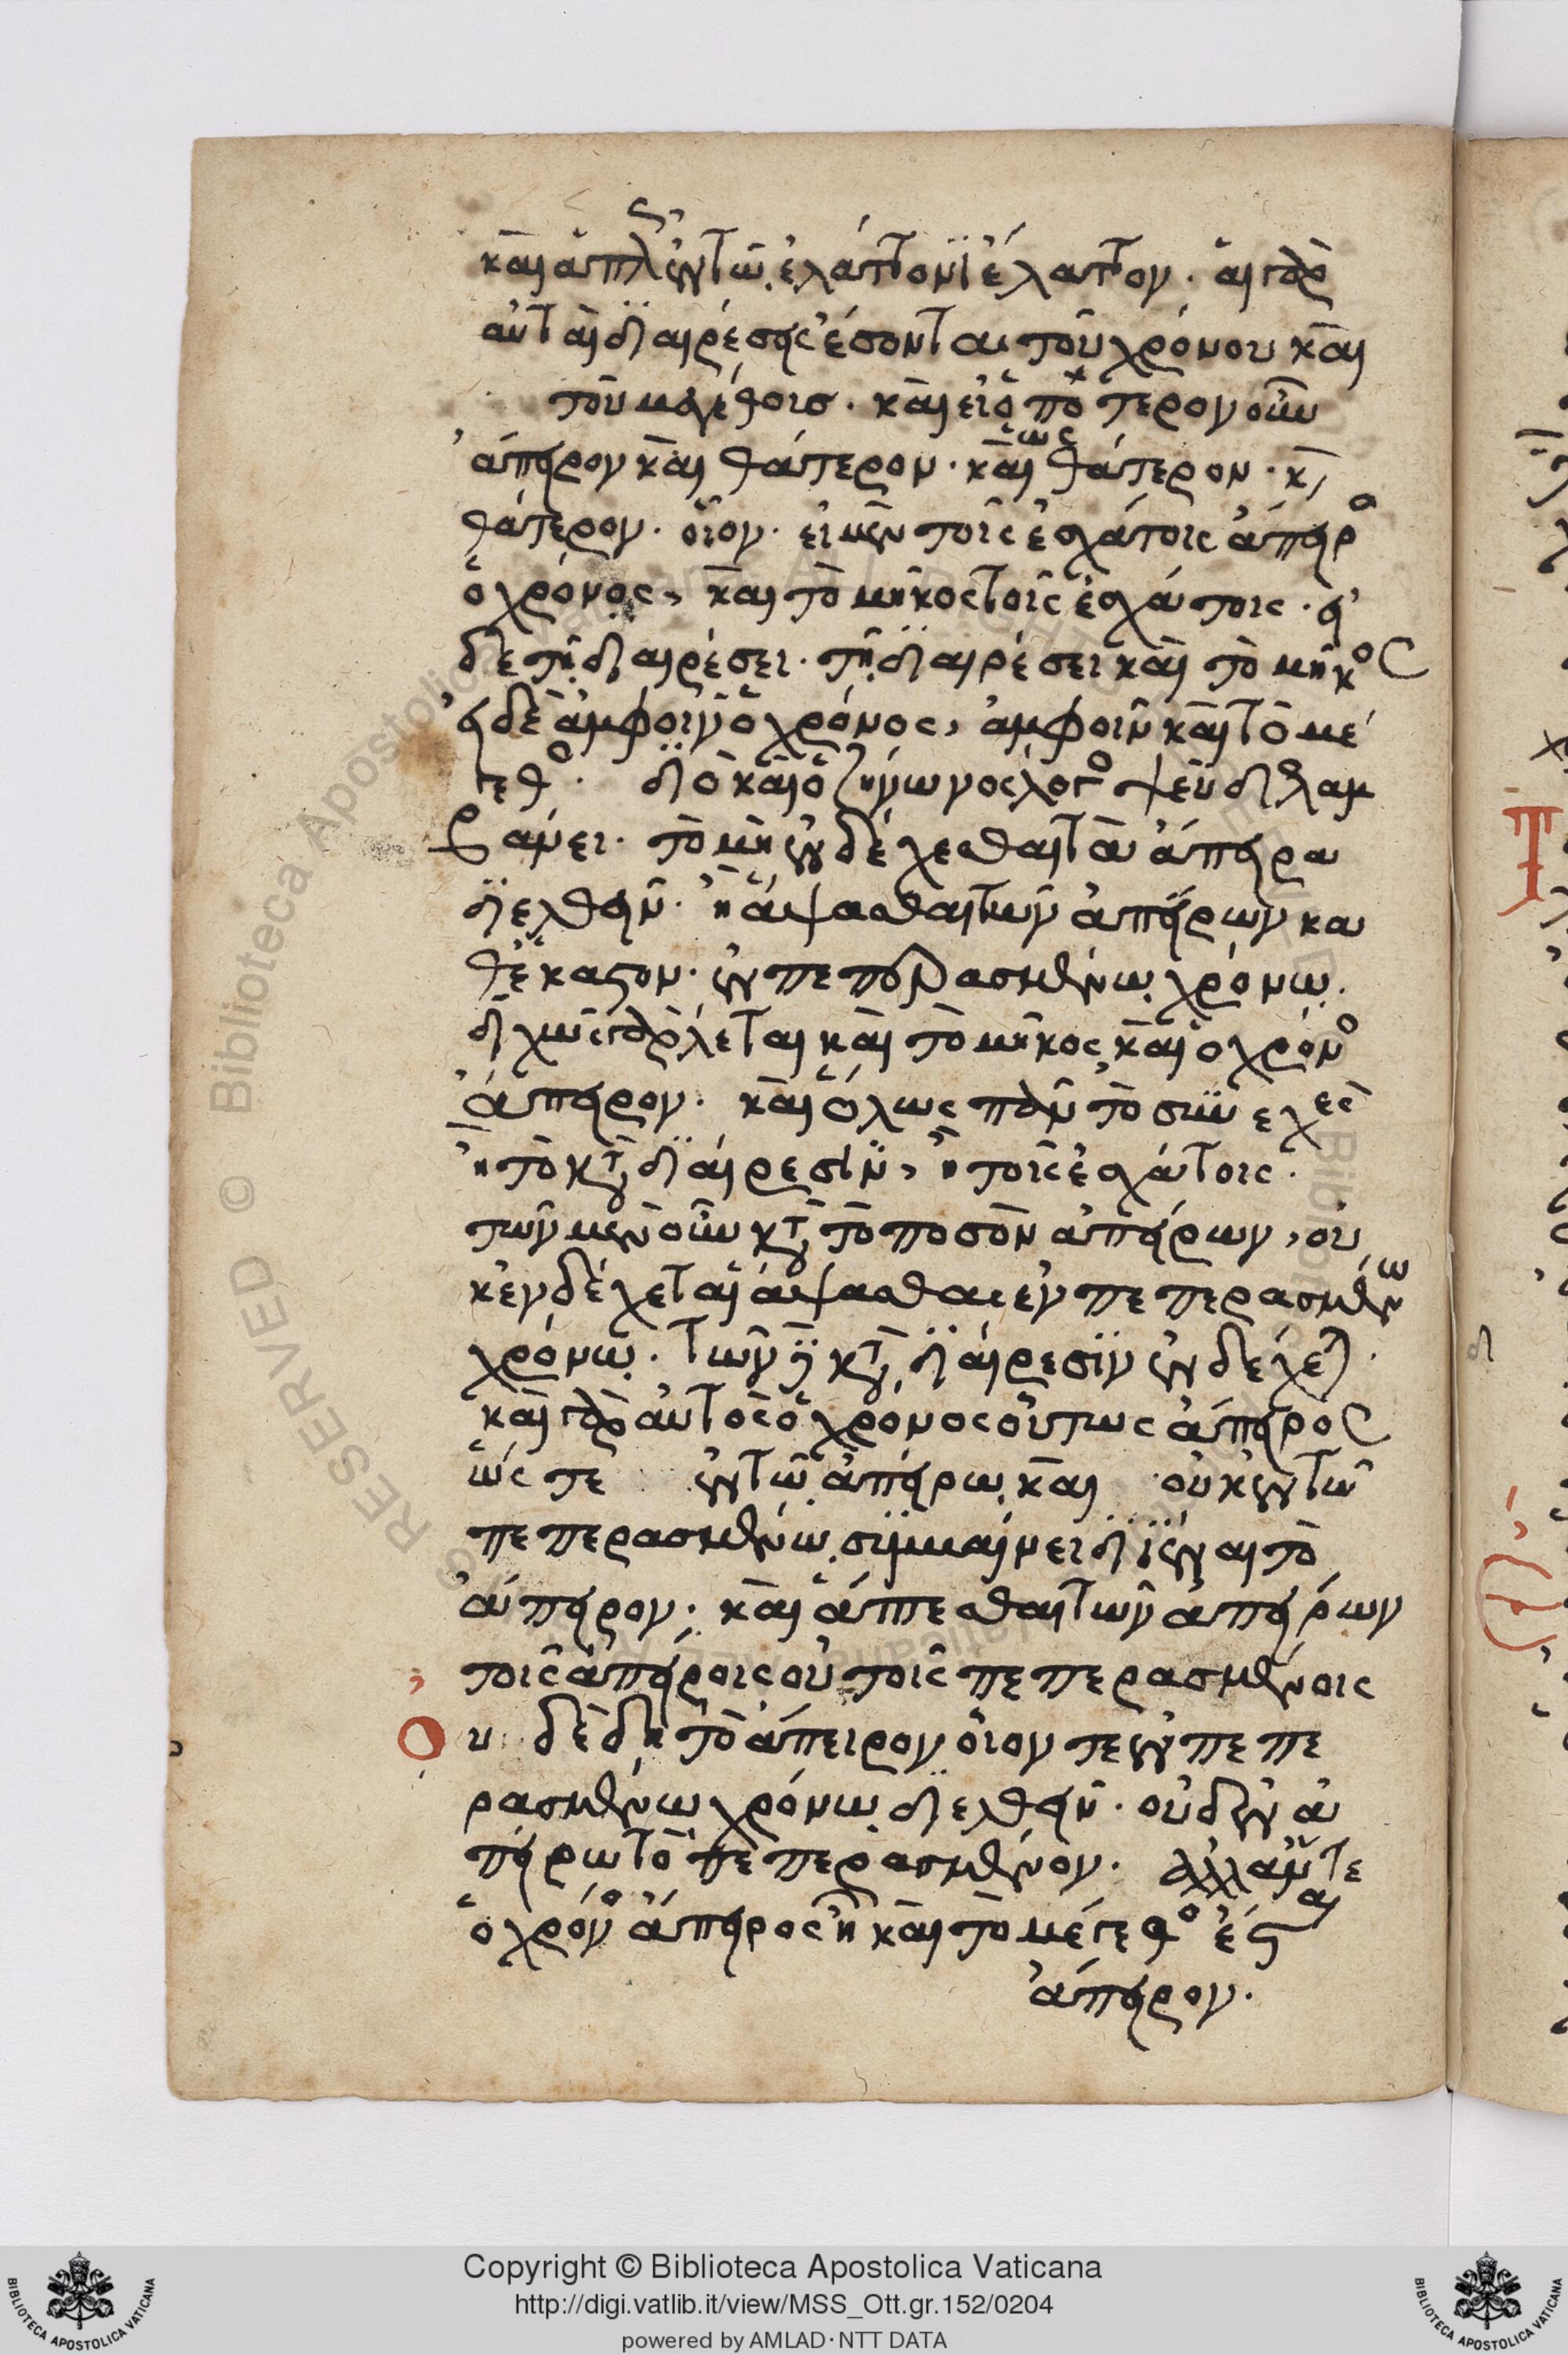 καὶ ἁπλῶς ἐν τῷ ἐλάττονι ἔλαττον. αἱ γὰρ
αὐταὶ διαιρέσεις ἔσονται τοῦ χρόνου καὶ
τοῦ μεγέθους. καὶ εἰ ὁπότερον οὖν
ἄπειρον καὶ θάτερον. καὶ ὡς θάτερον. κ
θάτερον. οἷον. εἰ μὲν τοῖς ἐσχάτοις ἄπειρος
ὁ χρόνος, καὶ τὸ μῆκος τοῖς ἐσχάτοις. εἰ
δὲ τῇ διαιρέσει. τῇ διαιρέσει καὶ τὸ μῆκος
εἰ δὲ ἀμφοῖν ὁ χρόνος, ἀμφοῖν καὶ τὸ μέ
γεθος. διὸ καὶ ὁ ζήνωνος λόγος ψεῦδος λαμ
βάνει. τὸ μὴ ἐνδέχεσθαι τὰ ἄπειρα
διελθεῖν. ἢ ἅψασθαι τῶν ἀπείρων κα
θέκαστον. ἐν πεπερασμένῳ χρόνῳ.
διχῶς γὰρ λέγεται καὶ τὸ μῆκος καὶ ὁ χρόνος
ἄπειρον. καὶ ὅλως πᾶν τὸ συνεχὲς
ἢ τὸ κτ διαίρεσιν, ἢ τοῖς ἐσχάτοις.
τῶν μὲν οὖν κτ τὸ ποσὸν ἀπείρων, οὐ
κ ἐνδέχεται ἅψασθαι ἐν πεπερασμένω
χρόνῳ. τῶν δὲ κτ διαίρεσιν ἐνδέχεται.
καὶ γὰρ αὐτὸς ὁ χρόνος οὕτως ἄπειρος
ὥς τε ἐν τῷ ἀπείρῳ καὶ οὐκ ἐν τῶ
πεπερασμένῳ συμβαίνει διϊέναι τὸ
ἄπειρον. καὶ ἅπτεσθαι τῶν ἀπείρων
τοῖς ἀπείροις οὐ τοῖς πεπερασμένοις
Ου δὲ δὴ τὸ ἄπειρον οἷον τε ἐν πεπε
ρασμένῳ χρόνῳ διελθεῖν. οὐδ ἐν ἀ
πείρω τὸ πεπερασμένον. ἀλλ ἄν τε
ὁ χρόνος ἄπειρος ἦ καὶ τὸ μέγεθος ἔσται
ἄπειρον.
Copyright © Biblioteca Apostolica Vaticana
http://digi.vatlib.it/view/MSS_Ott.gr.152/0204
powered by AMLAD·NTT DATA
BIBLIOTECA APOSTOLICA VATICANA
BIBLIOTECA APOSTOLICA VATICANA